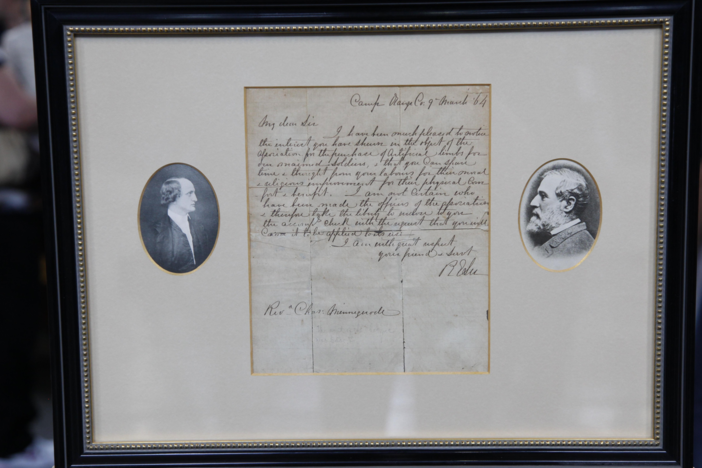 Camp Orange Co. 9 March '64
My dear Sir
I have been much pleased to notice
the interest you have shewn in the object of the
association for the purchase of Artificial limbs for
our maimed soldiers, & that you can spare
time & thought from your labours for their moral
& religious improvement for their physical com
fort & benefit. I am not certain who
have been made the officers of the association
& therefore take the liberty to enclose to you
the accompg check with the request that you will
cause it to be applied to
I am with great respect
your friend & Servt
R E Lee
Revd Chas Minnigerode